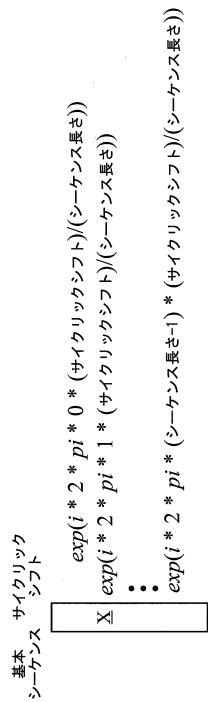 基本
シーケンス
サイクリック
シフト
exp(i * 2 * pi * 0 * (サイクリックシフト)/(シーケンス長さ))
X exp(i * 2 * pi * 1 * (サイクリックシフト)/(シーケンス長さ))
⋮
exp(i * 2 * pi * (シーケンス長さ-1) * (サイクリックシフト)/(シーケンス長さ))